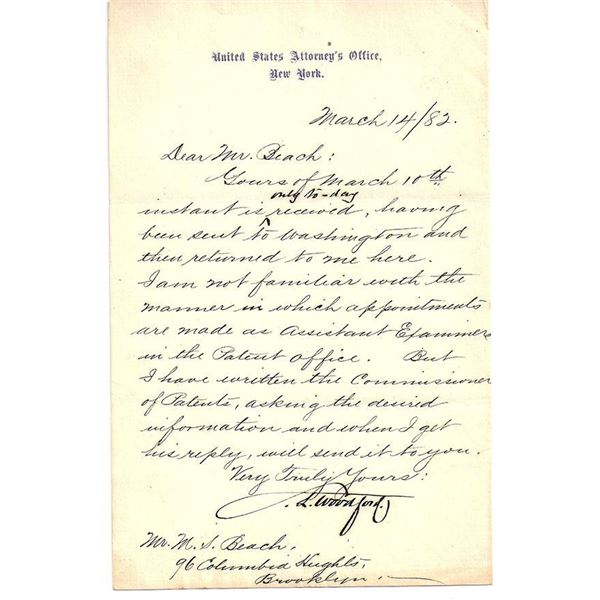 United States Attorney's Office,
New York.
March 14/82.
Dear Mr. Beach:
Yours of March 10th
only to-day
instant is received, having
been sent to Washington and
then returned to me here.
I am not familiar with the
manner in which appointments
are made as Assistant Examiners
in the Patent Office. But
I have written the Commissioner
of Patents, asking the desired
information and when I get
his reply, will send it to you.
Very Truly Yours:
S. L. Woodford.
Mr. M. S. Beach,
96 Columbia Heights,
Brooklyn.